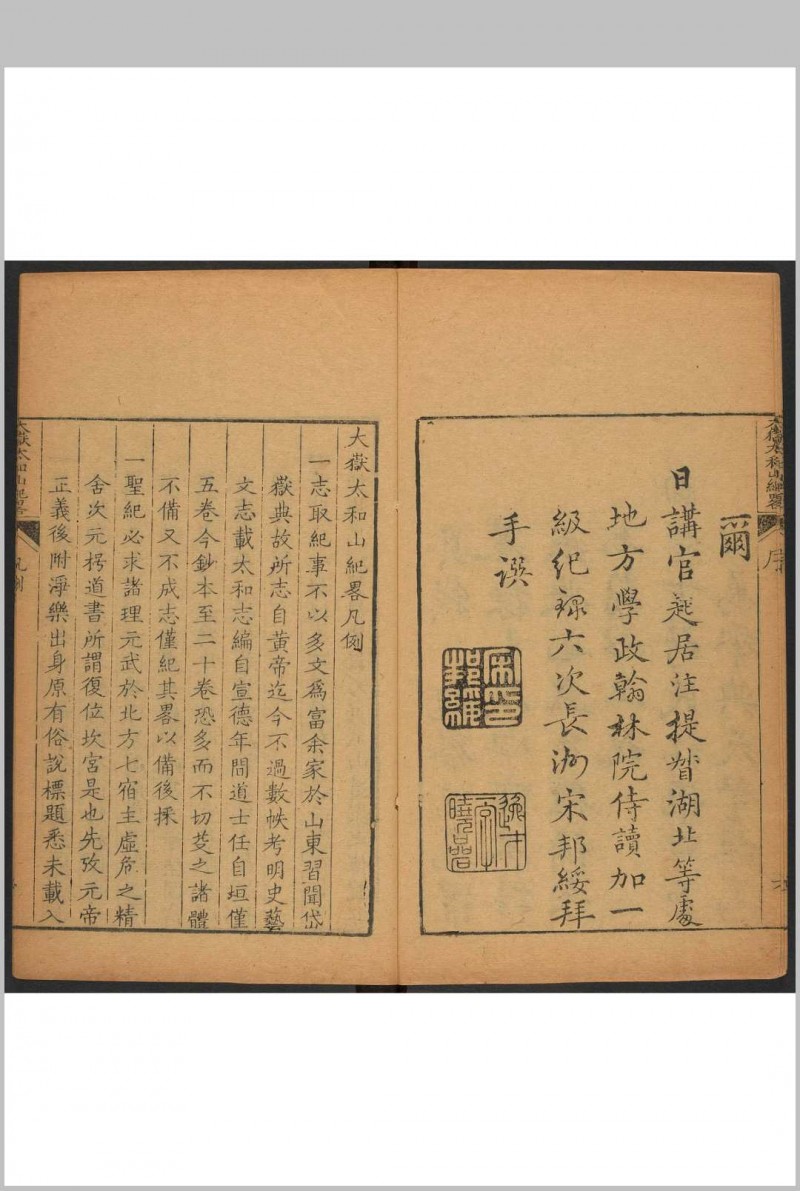 爾
日講官起居注提督湖北等處
地方學政翰林院侍讀加一
級紀錄六次長洲宋邦綏拜
手譔
大嶽太和山紀畧
序
大嶽太和山紀畧凡例
一志取紀事不以多文爲富余家於山東習聞岱
嶽典故所志自黃帝迄今不過數帙考明史藝
文志載太和志編自宣德年間道士任自垣僅
五卷今鈔本至二十卷恐多而不切芟之諸體
不備又不成志僅紀其畧以備後採
一聖紀必求諸理元武於北方七宿主虛危之精
舍次元枵道書所謂復位坎宮是也先攷元帝
正義後附淨樂出身原有俗說標題悉未載入
大嶽太和山紀畧
凡例